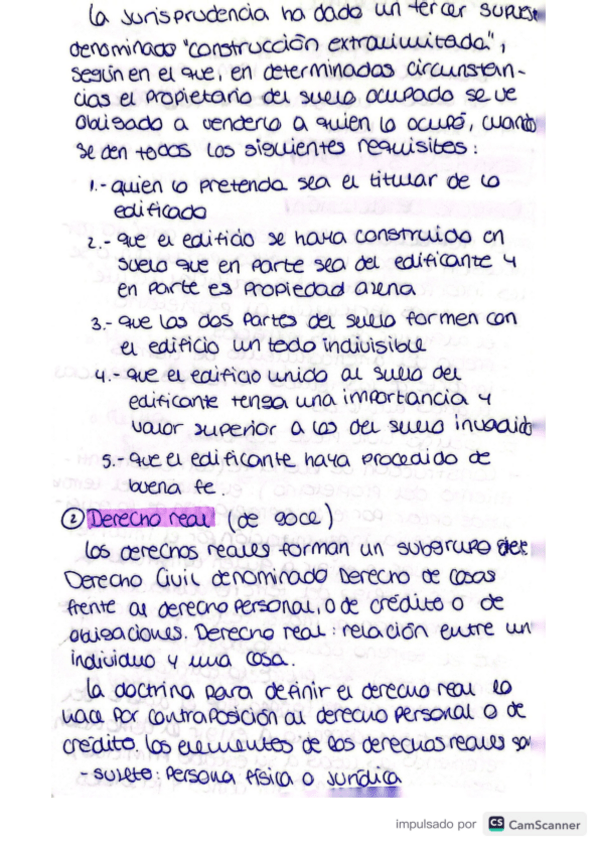 La Jurisprudencia ha dado un tercer supuesto
denominado "construcción extralimitada",
según en el que, en determinadas circunstan-
cias el propietario del suelo ocupado se ve
obligado a venderlo a quien lo ocupó, cuando
se den todos los siguientes requisitos:
1.- quien lo pretenda sea el titular de lo
edificado
2.- que el edificio se haya construido en
suelo que en parte sea del edificante y
en parte es propiedad ajena
3.- que las dos partes del suelo formen con
el edificio un todo indivisible
4.- que el edificio unido al suelo del
edificante tenga una importancia y
valor superior a los del suelo invadido
5.- que el edificante haya procedido de
buena fe.
② Derecho real (de goce)
Los derechos reales forman un subgrupo del
Derecho Civil denominado Derecho de cosas
frente al derecho personal, o de crédito o de
obligaciones. Derecho real: relación entre un
individuo y una cosa.
La doctrina para definir el derecho real lo
hace por contraposición al derecho personal o de
crédito. Los elementos de los derechos reales son
- sujeto: persona física o jurídica
impulsado por CS CamScanner